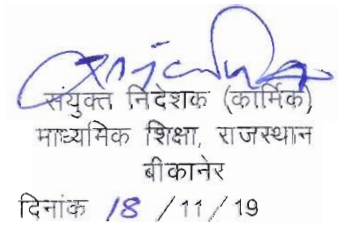 संयुक्त निदेशक (कार्मिक)
माध्यमिक शिक्षा, राजस्थान
बीकानेर
दिनांक 18 /11/19